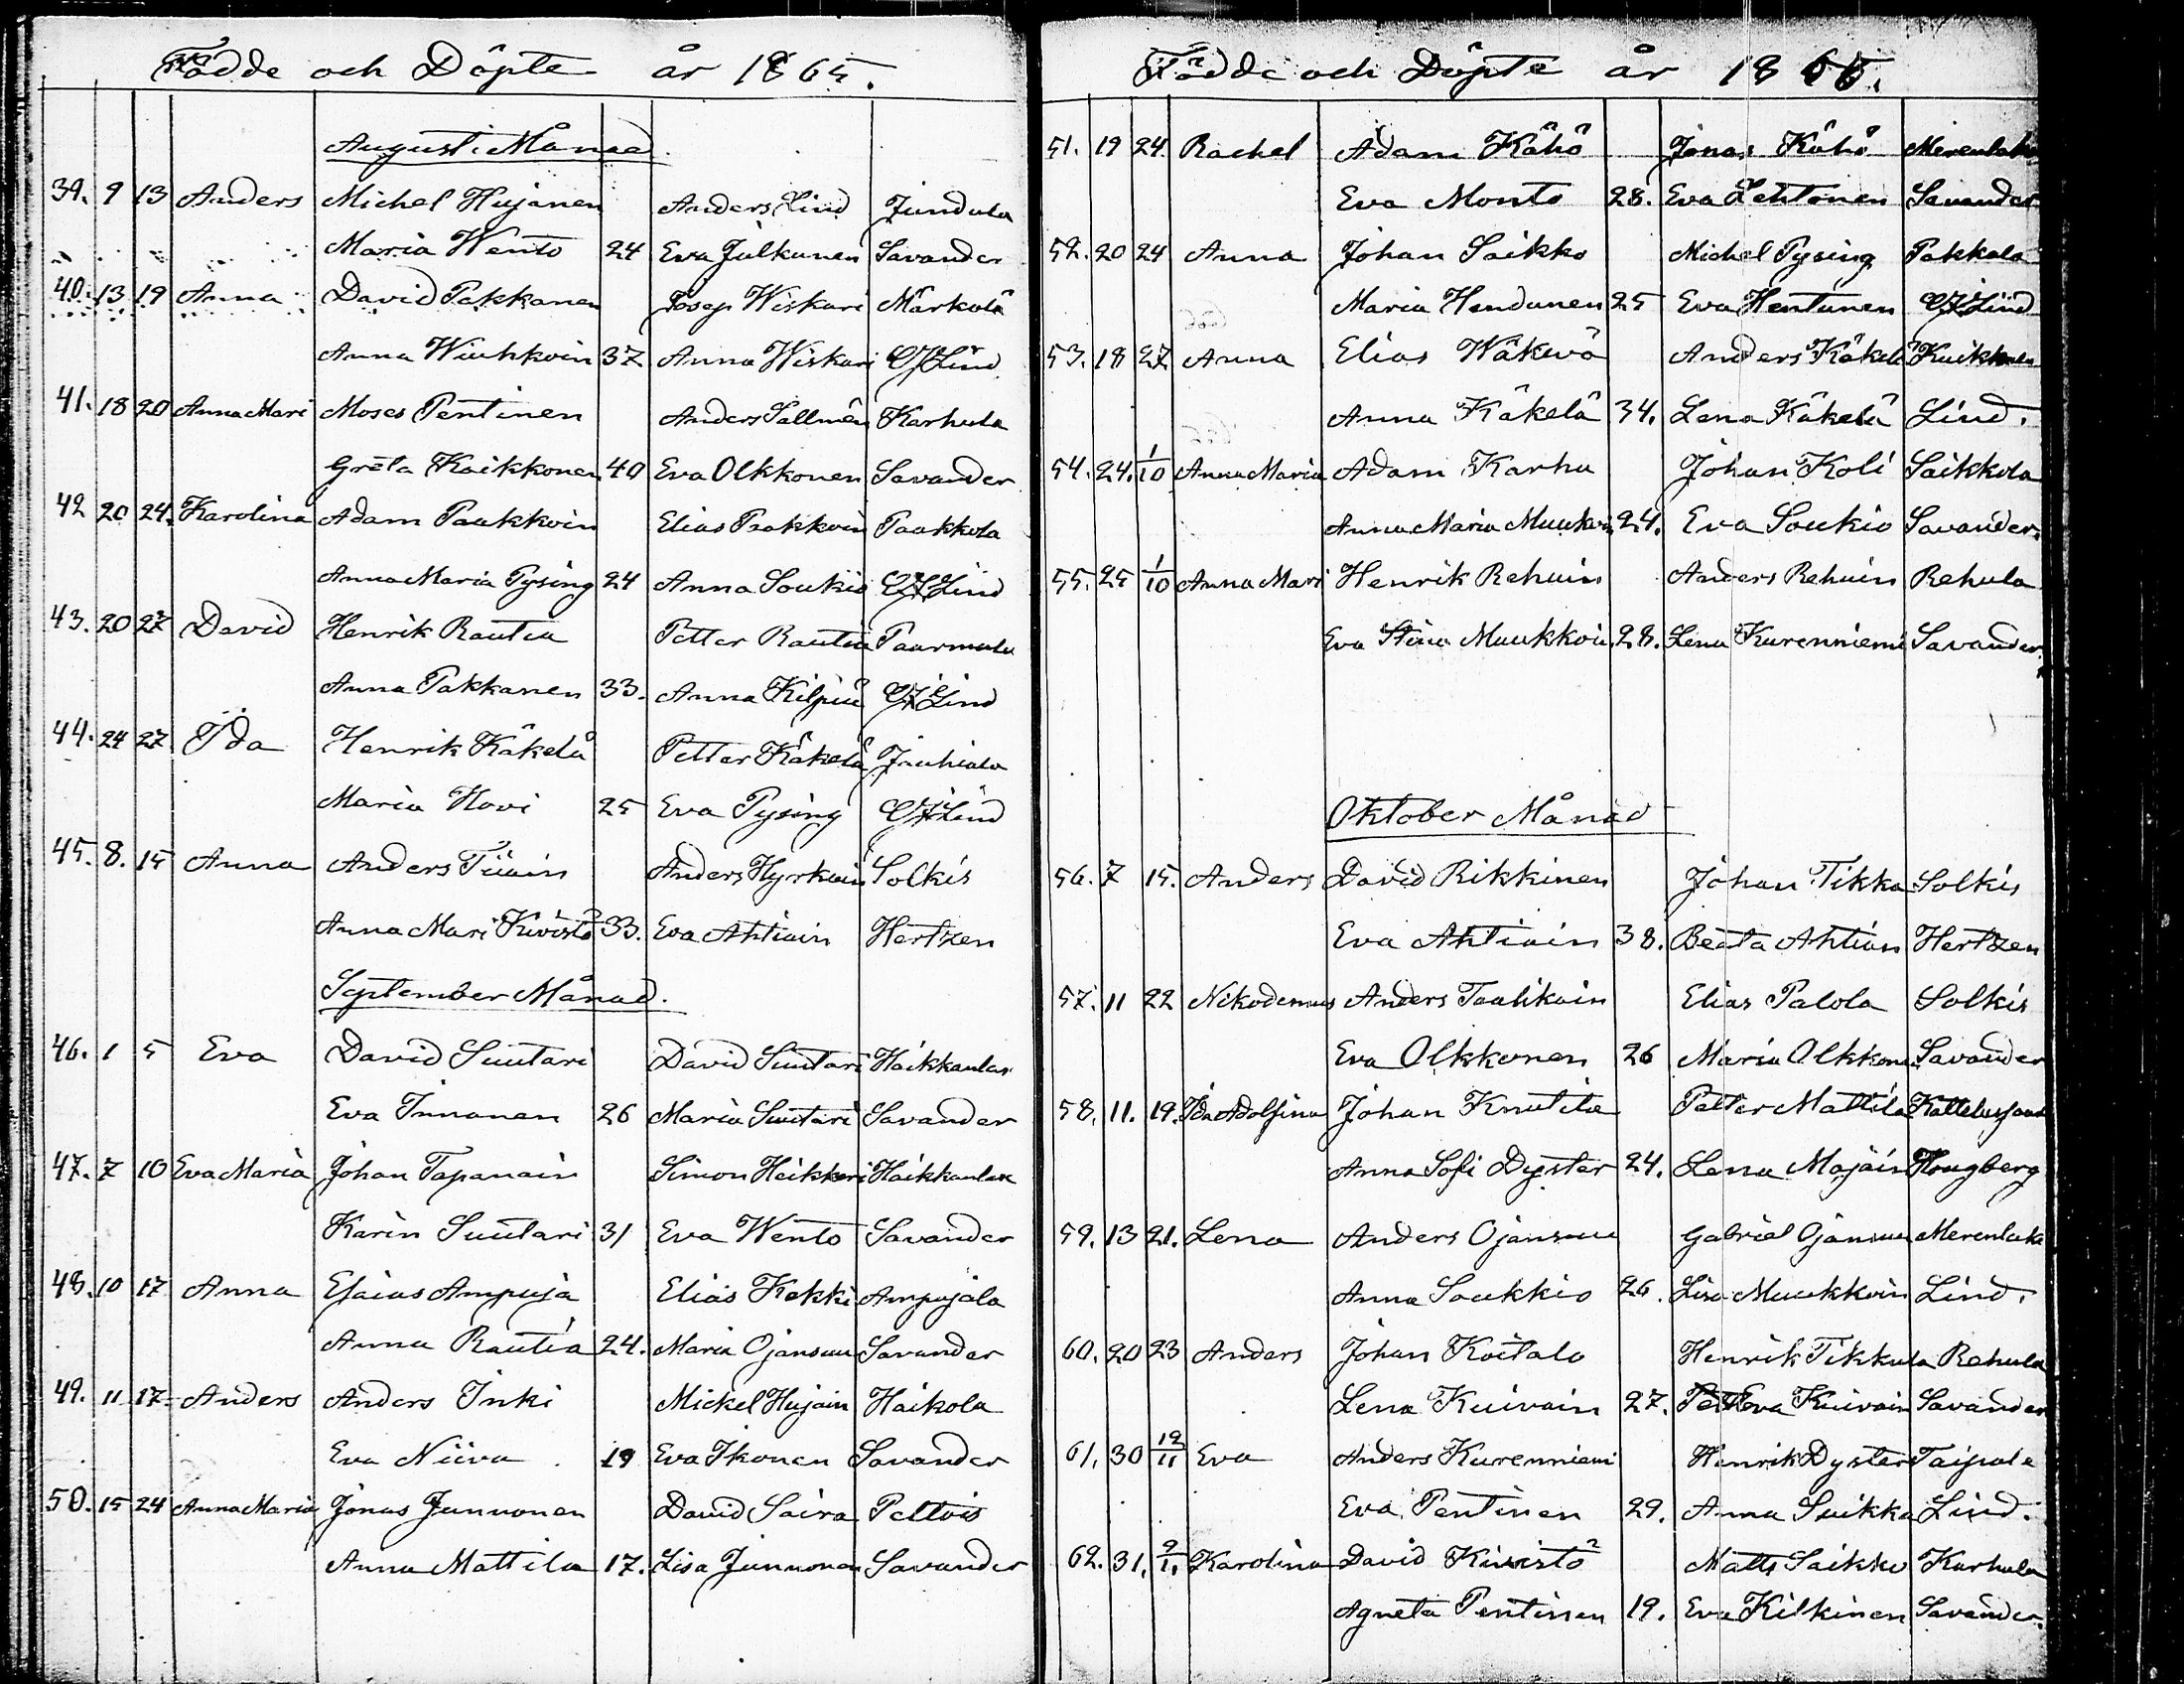 Födde och Döpte år 1865.
Augusti Månad.
39. 9 13 Anders Michel Hujanen Anders Lind Jundula
Maria Wento 24 Eva Julkunen Savander
40. 13 19 Anna David Pakkanen Josep Wiskari Märkälä
Anna Wiuhkoin 37 Anna Wiskari Lind
41. 18 20 Anna Mari Moses Pentinen Anders Sallmén Karhula
Greta Kaikkonen 40 Eva Olkkonen Savander
42 20 24. Karolina Adam Paukkoin Elias Paakkoin Paakkola
Anna Maria Pysing 24 Anna Soukio Lind
43. 20 27 David Henrik Rautia Petter Rautia Paarmala
Anna Pakkanen 33. Anna Kilpiä Lind
44. 24 27 Ida Henrik Käkelä Petter Käkelä
Maria Hovi 25 Eva Pysing Lind
45. 8. 15 Anna Anders Anders Hyrkäin Solkis
Anna Mari Kivistö 33. Eva Ahtiain Hertzen
September Månad.
46. 1 5 Eva David Suutari David Suutari Haikkanlax
Eva Innanen 26 Maria Suutari Savander
47. 7 10 Eva Maria Johan Tapanain Simon Heikkeri Haikkanlax
Karin Suutari 31 Eva Wento Savander
48. 10 17 Anna Esaias Ampuja Elias Kekki Ampujala
Anna Rautia 24. Maria Ojansuu Savander
49. 11 17 Anders Anders Inki Mickel Hujain Haikola
Eva Niiva 19 Eva Ikonen Savander
50. 15 24 Anna Maria Jonas Junnonen David Saira Peltois
Anna Mattila 17. Lisa Junnonen Savander
Födde och Döpte år 1865.
51. 19 24. Rachel Adam Kähö Jonas Kähö Merenlaks
Eva Monto 28. Eva Lehtonen Savander
52. 20 24 Anna Johan Saikko Michel Pysing Pakkala
Maria Hendunen 25 Eva Hentunen Lind
53. 18 27 Anna Elias Wäkevä Anders Käkelä
Anna Käkelä 34. Lena Käkelä Lind.
54. 24. 1/10 Anna Maria Adam Karhu Johan Koli Saikkola
Anna Maria Muukoin 24. Eva Soukio Savander.
55. 25 1/10 Anna Mari Henrik Rehuin Anders Rehuin Rehula
Eva Stina Muukkoin 28. Lena Kurenniemi Savander.
Oktober Månad
56. 7 15. Anders David Rikkinen Johan Tikka Solkis
Eva Ahtiain 38. Beata Ahtian Hertzen
57. 11 22 Nikodemus Anders Taalikain Elias Palola Solkis
Eva Olkkonen 26 Maria Olkkonen Savander
58. 11. 19. Ida Adolfina Johan Knutila Petter Mattila
Anna Sofi Dyster 24. Lena Majain Hougberg
59. 13 21. Lena Anders Ojansuu Gabriel Ojansuu Merenlaks
Anna Soukkio 26. Lisa Muukkoin Lind.
60. 20 23 Anders Johan Koitalo Henrik Tikkula Rehula
Lena Kuivain 27. Eva Kuivain Savander
61. 30 12/11 Eva Anders Kurenniemi Henrik Dyster Taipale
Eva Pentinen 29. Anna Suikka Lind.
62. 31. 2/11 Karolina David Kivistö Matts Saikko Karhula
Agneta Pentinen 19. Eva Kilkinen Savander.